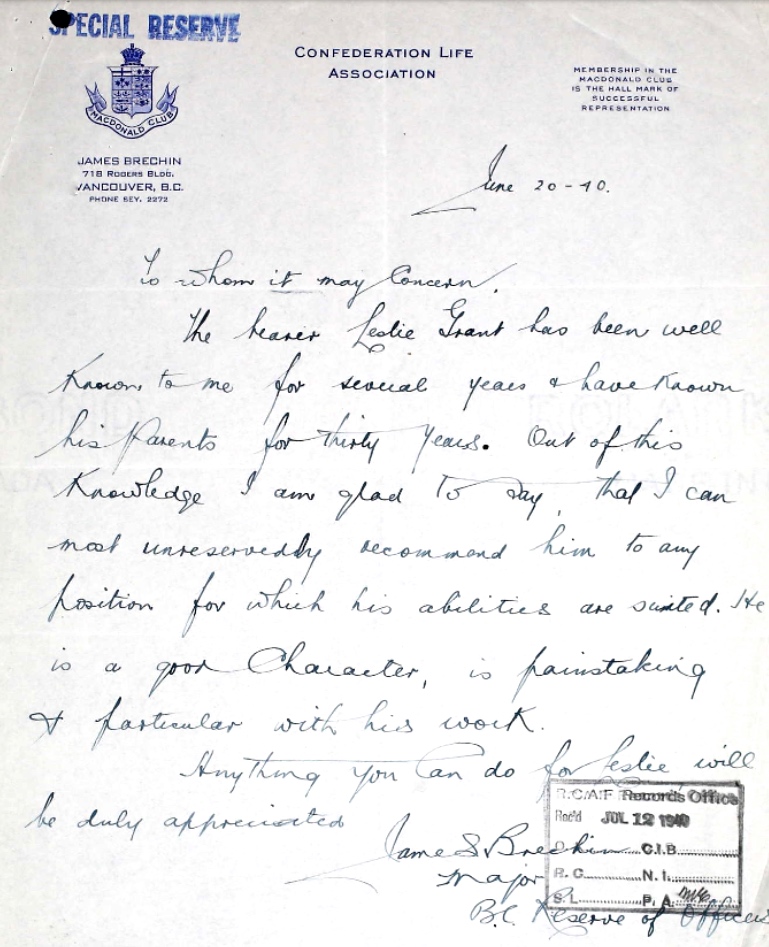 SPECIAL RESERVE
MACDONALD CLUB
JAMES BRECHIN
718 ROGERS BLDG.
VANCOUVER, B.C.
PHONE SEY. 2272
CONFEDERATION LIFE
ASSOCIATION
MEMBERSHIP IN THE
MACDONALD CLUB
IS THE HALL MARK OF
SUCCESSFUL
REPRESENTATION
June 20-40.
To whom it may Concern.
The bearer Leslie Grant has been well
Known to me for several years & have Known
his Parents for thirty years. Out of this
Knowledge I am glad to say, that I can
most unreservedly recommend him to any
position for which his abilities are suited. He
is a good Character, is painstaking
& particular with his work.
Anything you can do for Leslie will
be duly appreciated
James Brechin
Major
B.C. Reserve of Officers
R.C.A.F. Records Office
Rec'd JUL 12 1940
C.I.B.
R.C. N.I.
S.L. P.A.